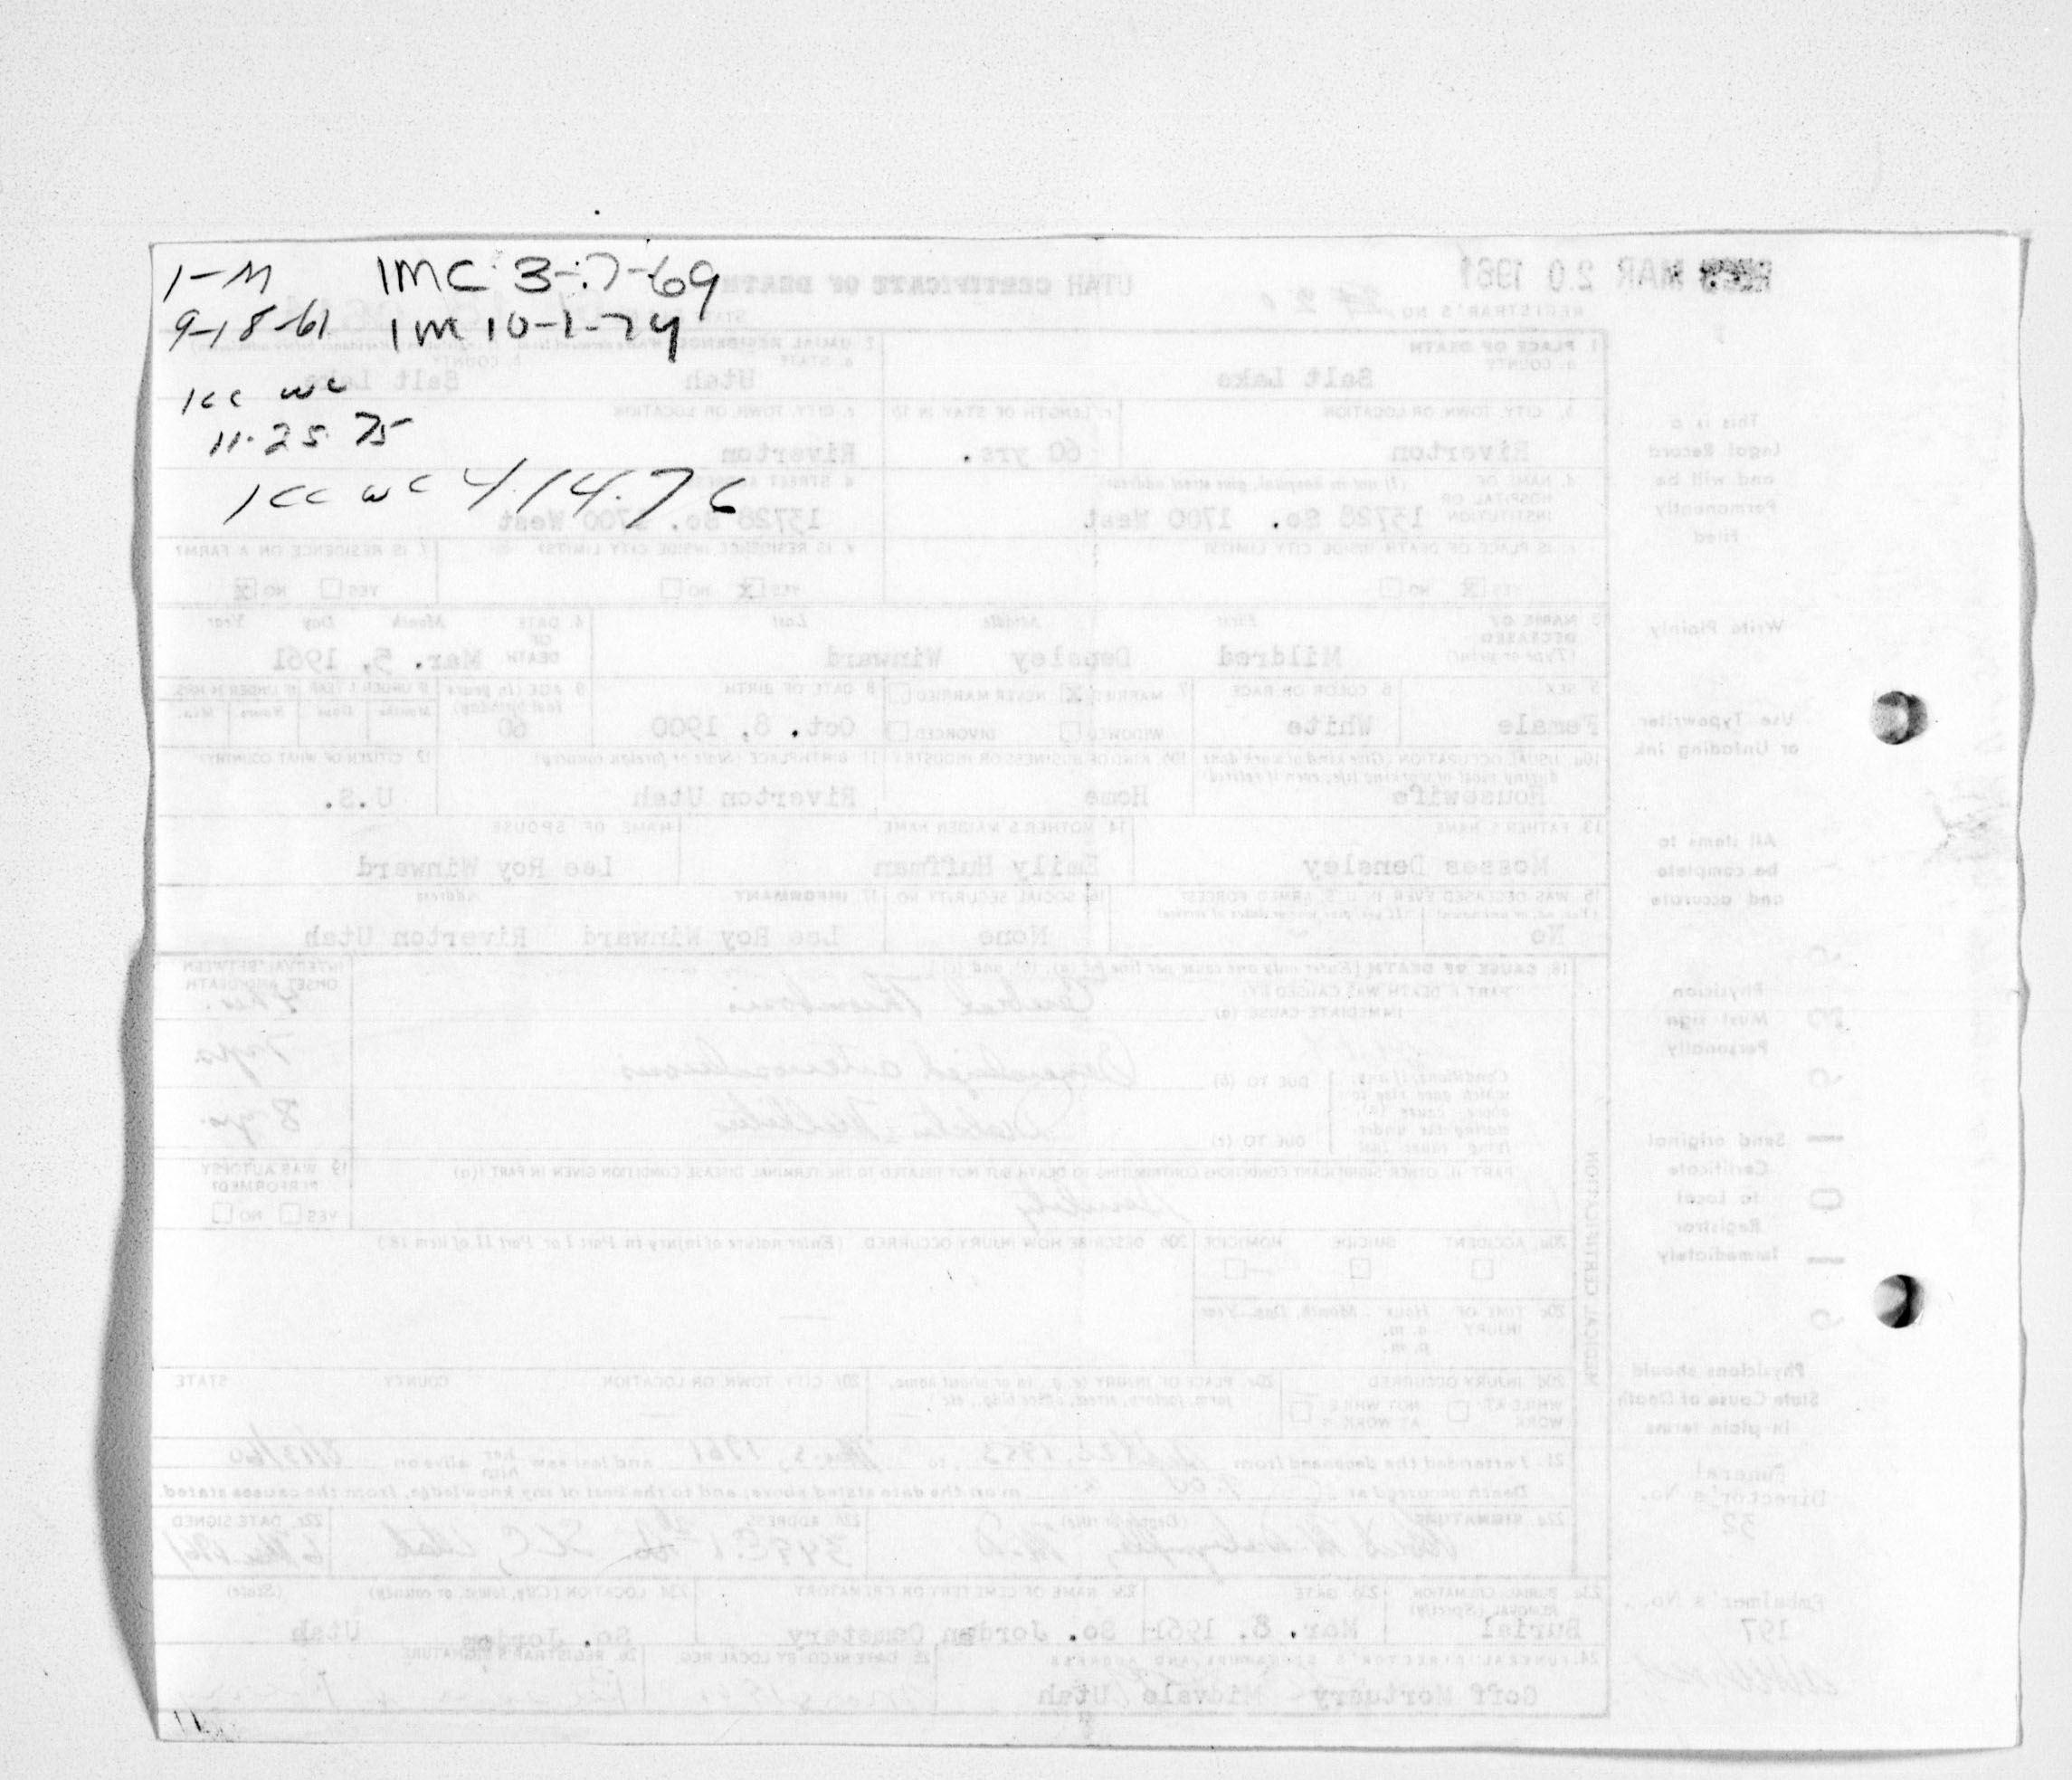 1-M 1MC 3-7-69
9-18-61 1M 10-1-74
1cc wc
11.25 75
1cc wc 4.14.76
REC'D MAR 20 1961
UTAH CERTIFICATE OF DEATH
REGISTRAR'S NO.
1 PLACE OF DEATH
a. COUNTY
Salt Lake
2. USUAL RESIDENCE
a. STATE
Utah
b. COUNTY
Salt Lake
b. CITY, TOWN, OR LOCATION
Riverton
c. LENGTH OF STAY IN 1b
60 yrs.
c. CITY, TOWN, OR LOCATION
Riverton
d. NAME OF HOSPITAL OR INSTITUTION
(If not in hospital, give street address)
13728 So. 1700 West
d. STREET ADDRESS
13728 So. 1700 West
e. IS PLACE OF DEATH INSIDE CITY LIMITS?
YES X NO
e. IS RESIDENCE INSIDE CITY LIMITS?
YES X NO
f. IS RESIDENCE ON A FARM?
YES NO X
3 NAME OF DECEASED
(Type or print)
First Middle Last
Mildred Densley Winward
4. DATE OF DEATH
Month Day Year
Mar. 5, 1961
5 SEX
Female
6 COLOR OR RACE
White
7. MARRIED X NEVER MARRIED
WIDOWED DIVORCED
8 DATE OF BIRTH
Oct. 8, 1900
9 AGE (In years last birthday)
60
IF UNDER 1 YEAR
Months Days
IF UNDER 24 HRS.
Hours Min.
10a USUAL OCCUPATION (Give kind of work done during most of working life, even if retired)
Housewife
10b. KIND OF BUSINESS OR INDUSTRY
Home
11 BIRTHPLACE (State or foreign country)
Riverton Utah
12 CITIZEN OF WHAT COUNTRY?
U.S.
13. FATHER'S NAME
Mosses Densley
14. MOTHER'S MAIDEN NAME
Emily Huffman
NAME OF SPOUSE
Lee Roy Winward
15. WAS DECEASED EVER IN U.S. ARMED FORCES?
No
16 SOCIAL SECURITY NO.
None
17. INFORMANT
Address
Lee Roy Winward Riverton Utah
18. CAUSE OF DEATH (Enter only one cause per line for (a), (b), and (c))
PART I. DEATH WAS CAUSED BY:
IMMEDIATE CAUSE (a)
Cerebral Thrombosis
INTERVAL BETWEEN ONSET AND DEATH
Conditions, if any, which gave rise to above cause (a), stating the underlying cause last
DUE TO (b)
Generalized arteriosclerosis
7 yrs
DUE TO (c)
Diabetes Mellitus
8 yrs.
PART II. OTHER SIGNIFICANT CONDITIONS CONTRIBUTING TO DEATH BUT NOT RELATED TO THE TERMINAL DISEASE CONDITION GIVEN IN PART I(a)
19 WAS AUTOPSY PERFORMED?
YES NO
20a. ACCIDENT SUICIDE HOMICIDE
20b DESCRIBE HOW INJURY OCCURRED. (Enter nature of injury in Part I or Part II of item 18.)
20c TIME OF INJURY
Hour Month, Day, Year
a.m.
p.m.
20d INJURY OCCURRED
WHILE AT WORK
NOT WHILE AT WORK
20e. PLACE OF INJURY (e.g., in or about home, farm, factory, street, office bldg., etc.)
20f CITY, TOWN, OR LOCATION COUNTY STATE
21. I attended the deceased from 1953, to 1961 and last saw her him alive on
Death occurred at m on the date stated above; and to the best of my knowledge, from the causes stated.
22a. SIGNATURE
(Degree or title)
M.D.
22b ADDRESS
22c. DATE SIGNED
23a BURIAL, CREMATION REMOVAL (Specify)
Burial
23b DATE
Mar. 8, 1961
23c NAME OF CEMETERY OR CREMATORY
So. Jordan Cemetery
23d LOCATION (City, town, or county) (State)
So. Jordan Utah
24. FUNERAL DIRECTOR'S SIGNATURE AND ADDRESS
Goff Mortuary- Midvale Utah
25 DATE REC'D BY LOCAL REG.
26. REGISTRAR'S SIGNATURE
MEDICAL CERTIFICATION
This is a
Legal Record
and will be
Permanently
Filed
Write Plainly
Use Typewriter
or Unfading Ink
All items to
be complete
and accurate
Physician
Must sign
Personally
Send original
Certificate
to Local
Registrar
Immediately
Physicians should
State Cause of Death
in plain terms
Funeral
Director's No.
32
Embalmer's No.
197